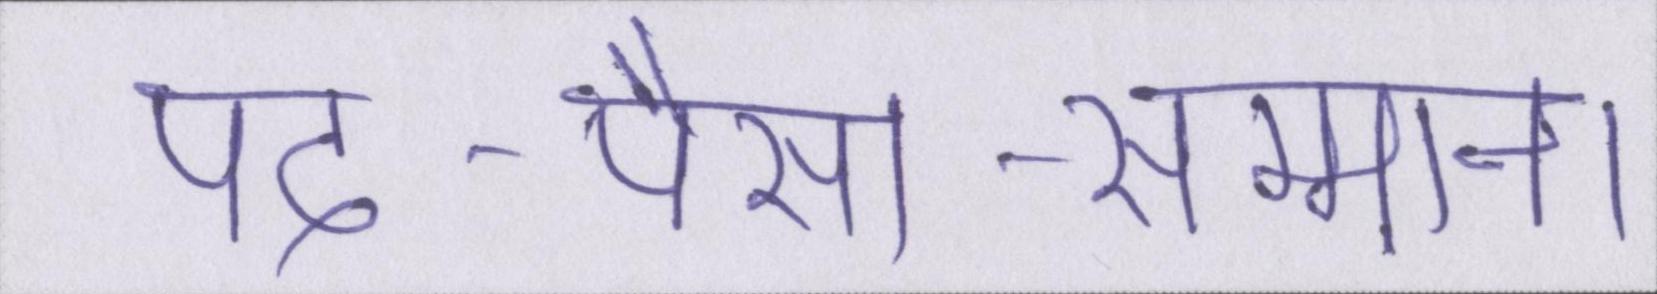 पद -पैसा -सम्मान।